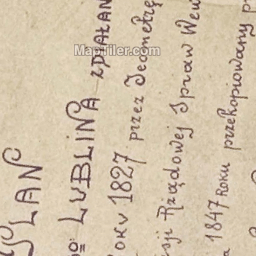 PLAN
DO LUBLINA ZDZIAŁAN
ROKU 1827 przez Jeometrę
sji Rządowej Spraw Wew
1847 Roku przekopiowany p
MapTiler.com